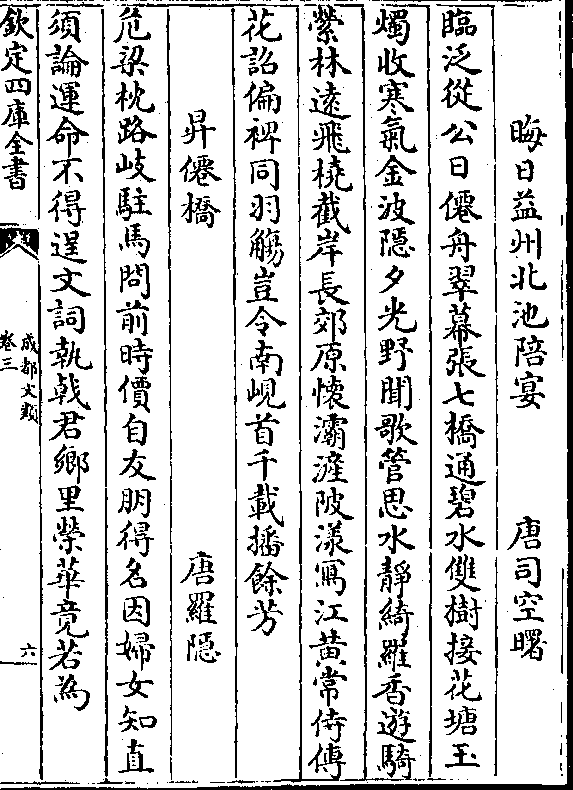 晦日益州北池陪宴 唐司空曙
臨泛從公日僊舟翠幕張七橋通碧水雙樹接花塘玉
燭收寒氣金波隱夕光野聞歌管思水靜綺羅香遊騎
縈林遠飛橈截岸長郊原懷灞滻陂漾寫江黄常侍傳
花詔偏裨同羽觴豈令南峴首千載播餘芳
昇僊橋 唐羅隠
危梁枕路岐駐馬問前時價自友朋得名因婦女知直
須論運命不得逞文詞執戟君鄉里榮華竟若為
欽定四庫全書
成都文類
卷三
六